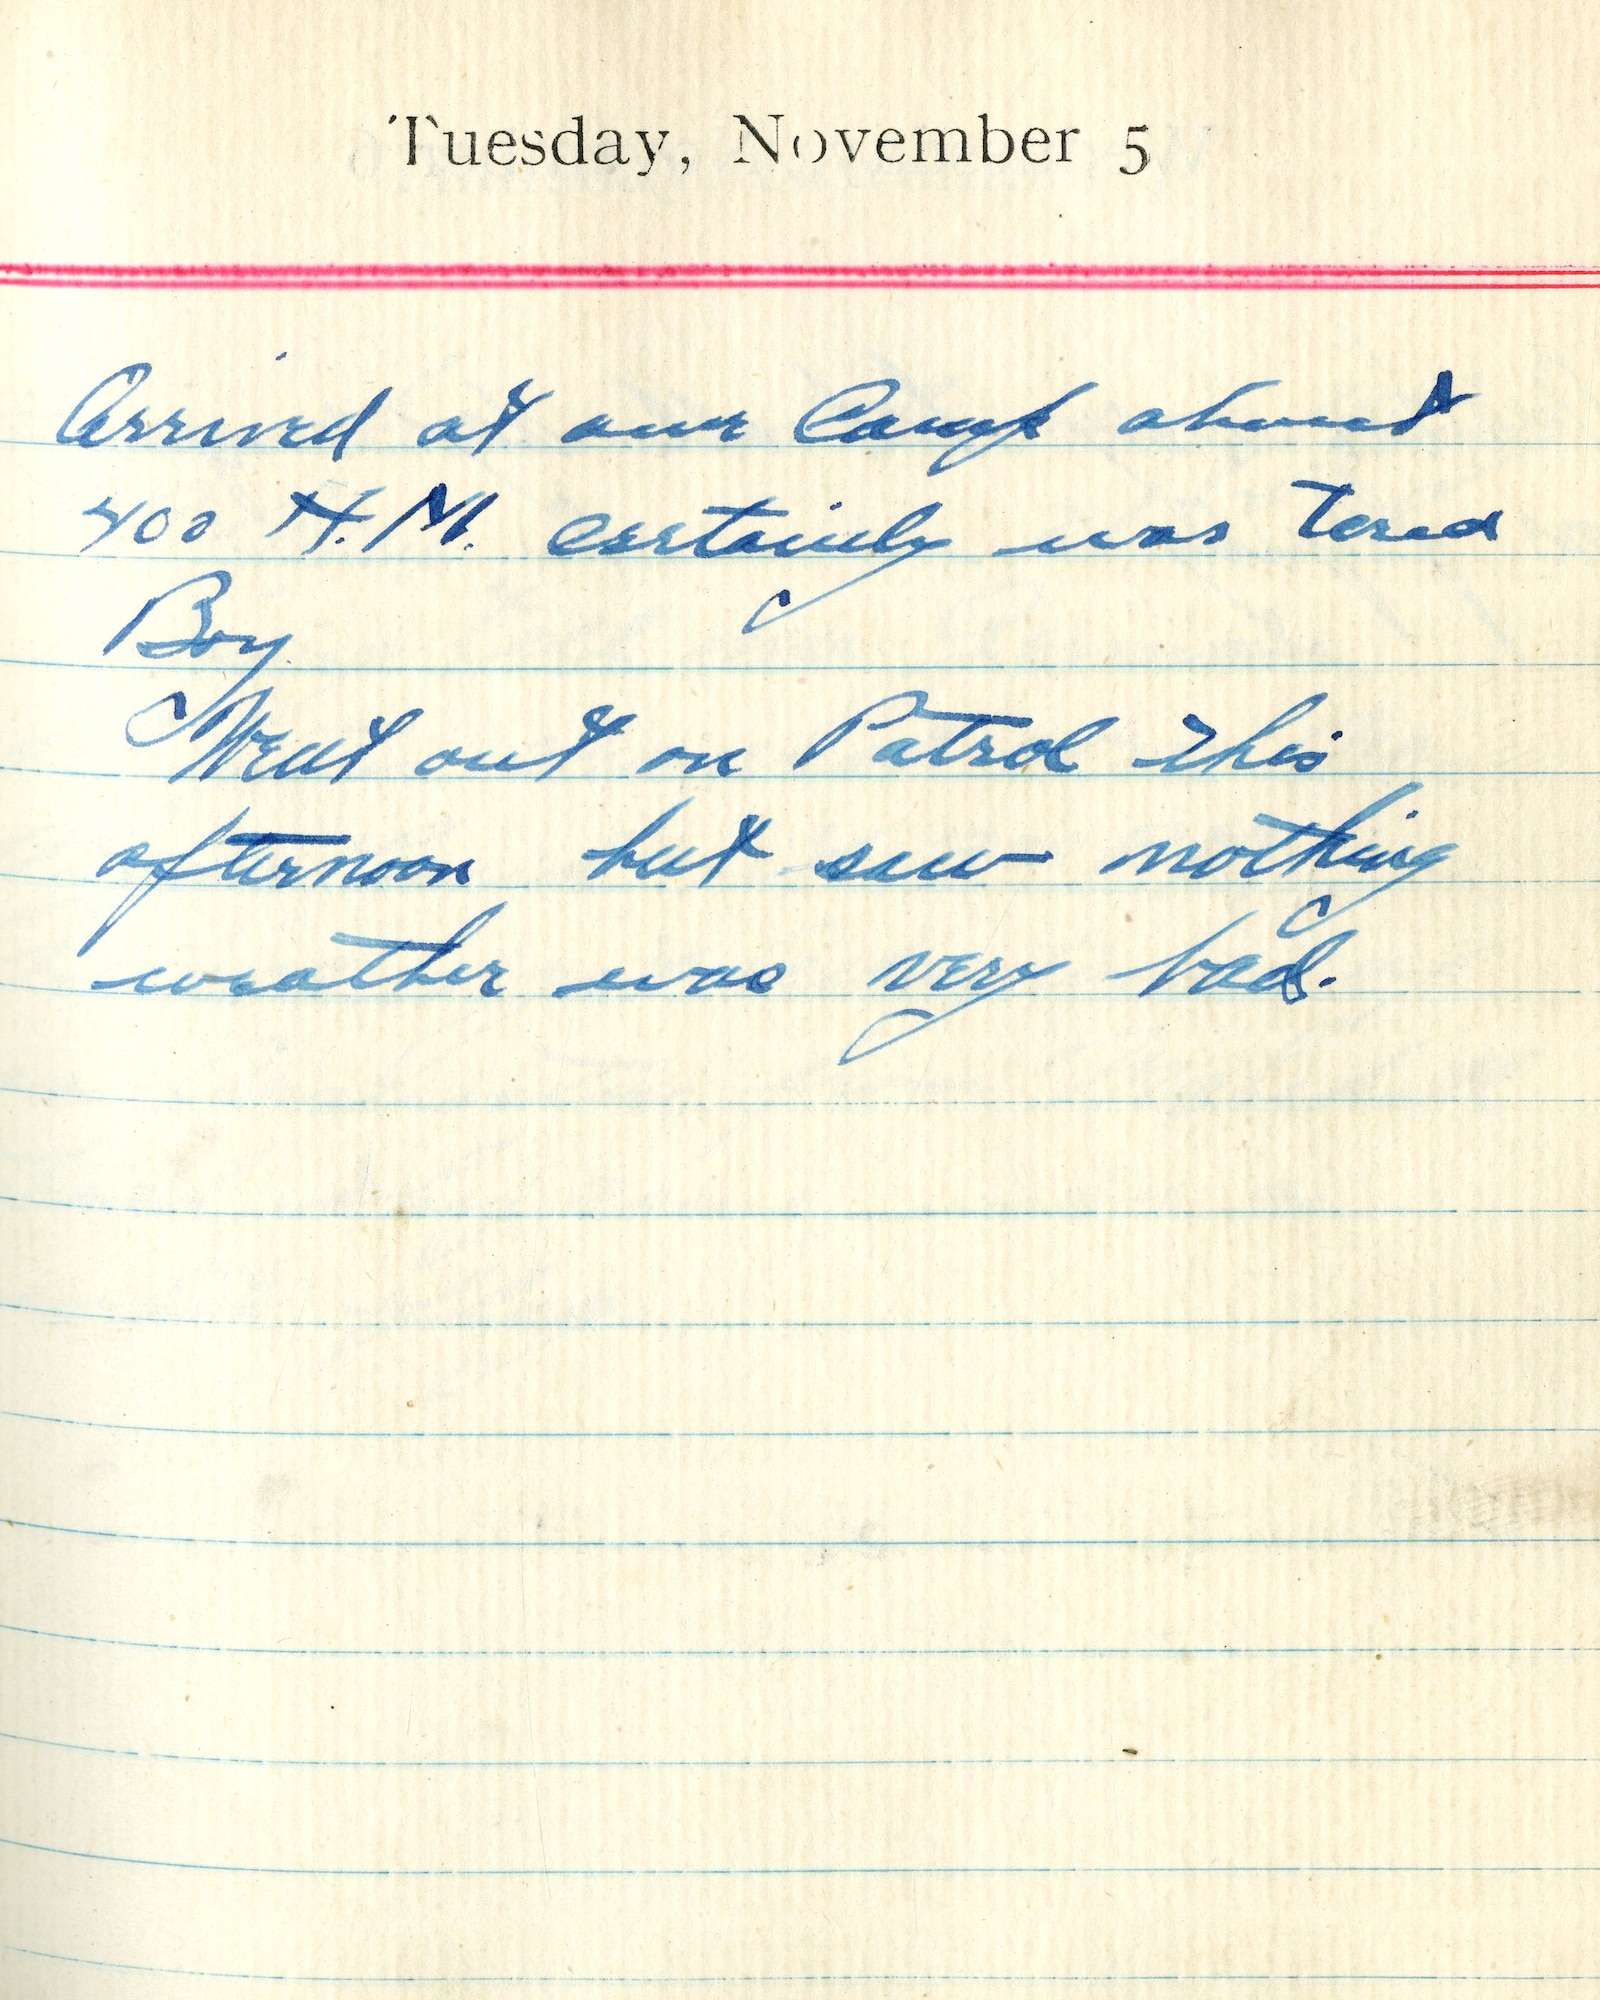 Tuesday, November 5
Arrived at our Camp about
400 A.M. certainly was tered
Boy
Went out on Patrol this
afternoon but saw nothing
weather was very bad.